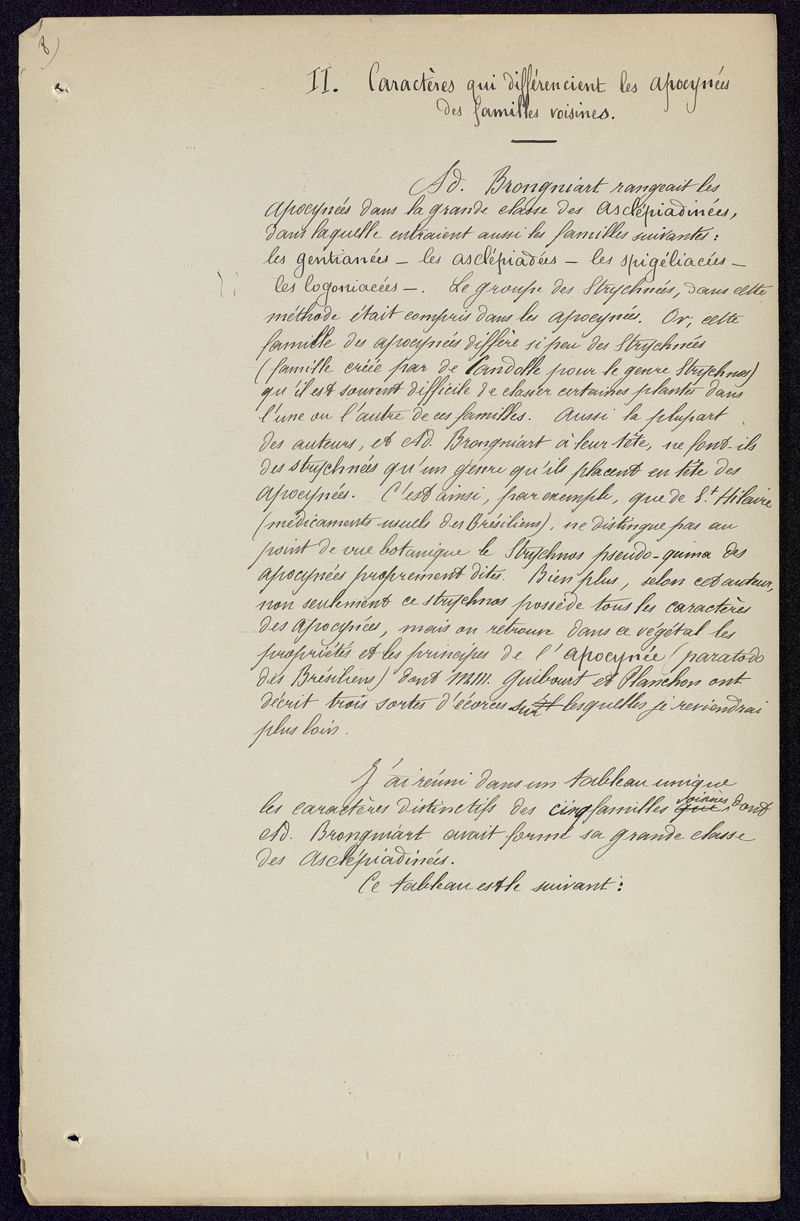 8)
II. Caractères qui différencient les apocynées
des familles voisines.
Ad. Brongniart rangeait les
apocynées dans la grande classe des asclépiadinées,
dans laquelle entraient aussi les familles suivantes :
les gentianées — les asclépiadées — les spigéliacées —
les logoniacées —. Le groupe des Strychnées, dans cette
méthode était compris dans les apocynées. Or, cette
famille des apocynées diffère si peu des Strychnées
(famille créée par de Candolle pour le genre Strychnos)
qu'il est souvent difficile de classer certaines plantes dans
l'une ou l'autre de ces familles. Aussi la plupart
des auteurs, et Ad. Brongniart à leur tête, ne font-ils
des strychnées qu'un genre qu'ils placent en tête des
apocynées. C'est ainsi, par exemple, que de St Hilaire
(médicaments usuels des Brésiliens), ne distingue pas au
point de vue botanique le Strychnos pseudo-quina des
apocynées proprement dites. Bien plus, selon cet auteur,
non seulement ce strychnos possède tous les caractères
des apocynées, mais on retrouve dans ce végétal les
propriétés et les principes de l'apocynée (paratodo
des Brésiliens) dont MM. Guibourt et Planchon ont
décrit trois sortes d'écorces sur lesquelles je reviendrai
plus loin.
J'ai réuni dans un tableau unique
les caractères distinctifs des cinq familles que voisines dont
Ad. Brongniart avait formé sa grande classe
des Asclépiadinées.
Ce tableau est le suivant :